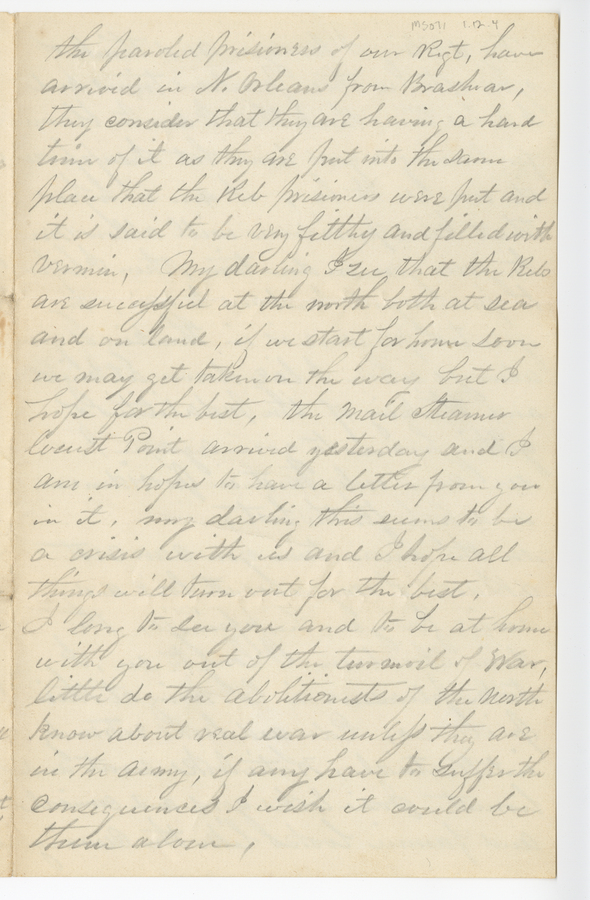 MS071 1.12.4
the paroled prisioners of our Regt, have
arrived in N. Orleans from Brashear,
they consider that they are having a hard
time of it as they are put into the same
place that the Reb prisioners were put and
it is said to be very filthy and filled with
vermin, My darling I see that the Rebs
are successful at the north both at sea
and on land, if we start for home soon
we may get taken on the way but I
hope for the best, the mail Steamer
Locust Point arrived yesterday and I
am in hopes to have a letter from you
in it, my darling this seems to be
a crisis with us and I hope all
things will turn out for the best,
I long to see you and to be at home
with you out of the turmoil of War,
little do the abolitionests of the north
know about real war unless they are
in the army, if any have to suffer the
consequences I wish it could be
them alone,